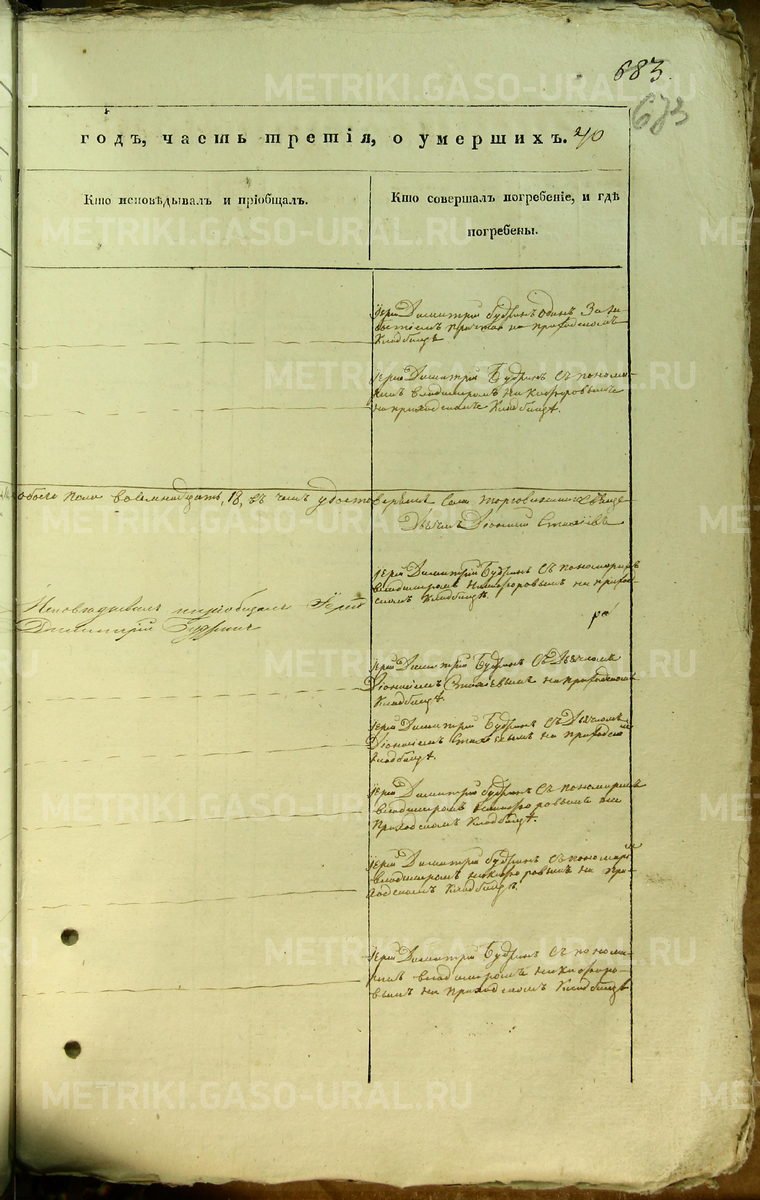 683.
673
годъ, часть третія, о умершихъ. 40
Кто исповѣдывалъ и пріобщалъ.
Кто совершалъ погребеніе, и гдѣ
погребены.
Іерей Димитрій Будринъ одинъ За не
на приходскомъ
Кладбищѣ
Іерей Димитрій Будринъ Съ понома-
ремъ владимиромъ никифоровымъ
на приходскомъ Кладбищѣ.
обоего пола восемнадцать, 18, въ чемъ удостовѣряемъ Села торговижскаго
Дьячекъ Діонисій
Іерей Димитрій Будринъ Съ пономаремъ
владимиромъ Никифоровымъ на прихо-
дскомъ Кладбищѣ.
Исповѣдывалъ и пріобщалъ Іерей
Димитрій Будринъ
Іерей Димитрій Будринъ Съ Дьячкомъ
Діонисіемъ на приходскомъ
Кладбищѣ.
Іерей Димитрій Будринъ Съ Дьячкомъ
Діонисіемъ на приходско
кладбищѣ.
Іерей Димитрій Будринъ Съ пономаремъ
владимиромъ никифоровымъ на
Приходскомъ Кладбищѣ.
Іерей Димитрій Будринъ Съ пономаремъ
владимиромъ никифоровымъ на при-
ходскомъ Кладбищѣ
Іерей Димитрій Будринъ Съ понома-
ремъ владимиромъ никифоро-
вымъ на приходскомъ Кладбищѣ
METRIKI.GASO-URAL.RU